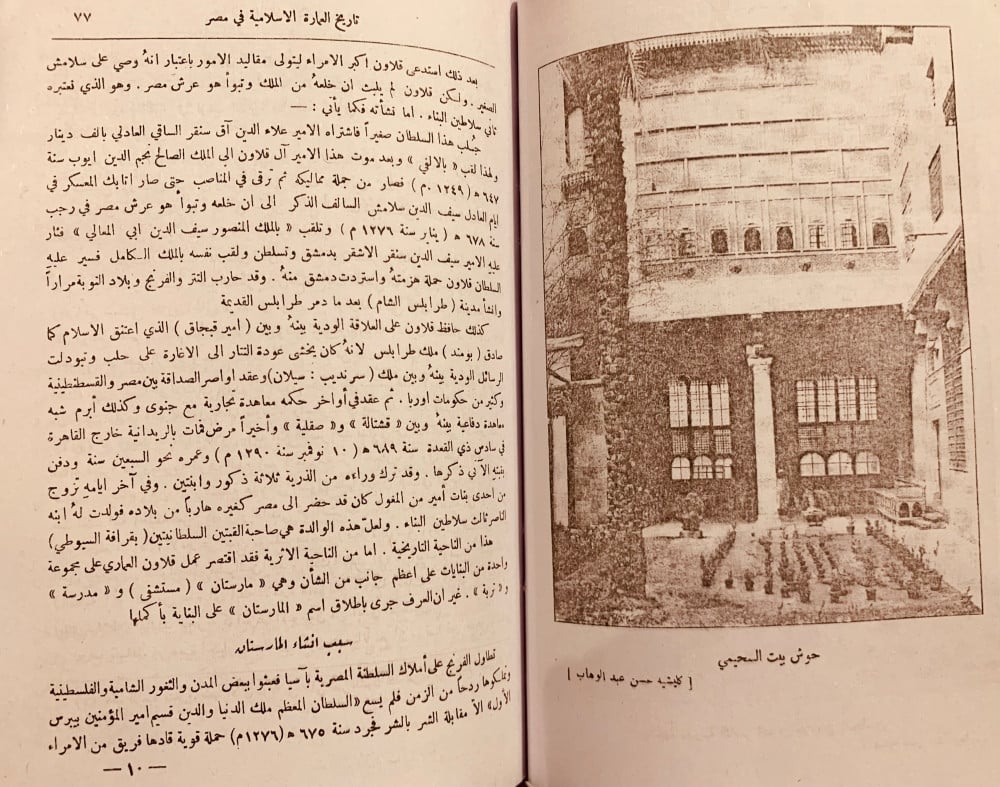 حوش بيت السحيمي
[ كليشيه حسن عبد الوهاب ]
تاريخ العمارة الاسلامية في مصر ٧٧
بعد ذلك استدعى قلاون اكبر الامراء ليتولى مقاليد الامور باعتبار انهُ وصي على سلامش
الصغير . ولكن قلاون لم يلبث ان خلعهُ من الملك وتبوأ هو عرش مصر . وهو الذي نعتبره
ثاني سلاطين البناء . اما نشأته فكما يأتي : —
جلب هذا السلطان صغيراً فاشتراه الامير علاء الدين آق سنقر الساقي العادلي بالف دينار
ولهذا لقب « بالالفي » وبعد موت هذا الامير آل قلاون الى الملك الصالح نجيم الدين ايوب سنة
٦٤٧ ﻫ ( ١٢٤٩ م ) فصار من جملة مماليكه ثم ترقى في المناصب حتى صار اتابك المعسكر في
ايام العادل سيف الدين سلامش السالف الذكر الى ان خلعه وتبوأ هو عرش مصر في رجب
سنة ٦٧٨ ﻫ ( يناير سنة ١٢٧٦ م ) وتلقب « بالملك المنصور سيف الدين ابي المعالي » فثار
عليه الامير سيف الدين سنقر الاشقر بدمشق وتسلطن ولقب نفسه بالملك الكامل فسير عليه
السلطان قلاون حملة هزمتهُ واستردت دمشق منهُ . وقد حارب التتر والفرنج وبلاد النوبة مراراً
وانشأ مدينة ( طرابلس الشام ) بعد ما دمر طرابلس القديمة
كذلك حافظ قلاون على العلاقة الودية بينهُ وبين ( امير قبجاق ) الذي اعتنق الاسلام كما
صادق ( بومند ) ملك طرابلس لانهُ كان يخشى عودة التتار الى الاغارة على حلب وتبودلت
الرسائل الودية بينهُ وبين ملك ( سرنديب : سيلان ) وعقد اواصر الصداقة بين مصر والقسطنطينية
وكثير من حكومات اوربا . ثم عقد في أواخر حكمه معاهدة تجارية مع جنوى وكذلك أبرم شبه
معاهدة دفاعية بينهُ وبين « قشتالة » و« صقلية » وأخيراً مرض فمات بالريدانية خارج القاهرة
في سادس ذي القعدة سنة ٦٨٩ ﻫ ( ١٠ نوفمبر سنة ١٢٩٠ م ) وعمره نحو السبعين سنة ودفن
بقبته الآتي ذكرها . وقد ترك وراءه من الذرية ثلاثة ذكور وابنتين . وفي آخر ايامه تزوج
من احدى بنات أمير من المغول كان قد حضر الى مصر كغيره هارباً من بلاده فولدت لهُ ابنه
الناصر ثالث سلاطين البناء . ولعلّ هذه الوالدة هي صاحبة القبتين السلطانيتين ( بقرافة السيوطي )
هذا من الناحية التاريخية . اما من الناحية الاثرية فقد اقتصر عمل قلاون العماري على مجموعة
واحدة من البنايات على اعظم جانب من الشأن وهي « مارستان » ( مستشفى ) و « مدرسة »
و« تربة » . غير ان العرف جرى باطلاق اسم « المارستان » على البناية بأكملها
سبب انشاء المارستان
تطاول الفرنج على أملاك السلطنة المصرية بآسيا فعبثوا ببعض المدن والثغور الشامية والفلسطينية
وتملكوها ردحاً من الزمن فلم يسع « السلطان المعظم ملك الدنيا والدين قسيم امير المؤمنين بيبرس
الأول » الاّ مقابلة الشر بالشر فجرد سنة ٦٧٥ ﻫ ( ١٢٧٦ م ) حملة قوية قادها فريق من الامراء
— ١٠ —